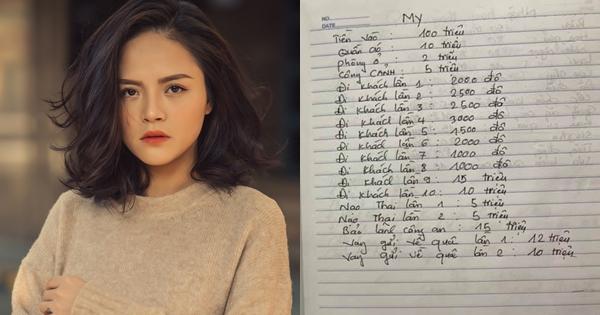 NO.
DATE
My
Tiền vào : 100 triệu
Quần áo : 10 triệu
phòng ở : 2 triệu
Công CẢNH : 5 triệu
Đi khách lần 1 : 2000 đô
Đi khách lần 2 : 2500 đô
Đi khách lần 3 : 2500 đô
Đi khách lần 4 3000 đô
Đi khách lần 5 : 1500 đô
Đi khách lần 6 : 2000 đô
Đi khách lần 7 : 1000 đô
Đi khách lần 8 : 1000 đô
Đi khách lần 9 : 15 triệu
Đi khách lần 10 : 10 triệu
Nạo Thai lần 1 : 5 triệu
Nạo Thai lần 2 : 5 triệu
Bảo lãnh công an : 15 triệu
Vay gửi về quê lần 1 : 12 triệu
Vay gửi về quê lần 2 : 10 triệu